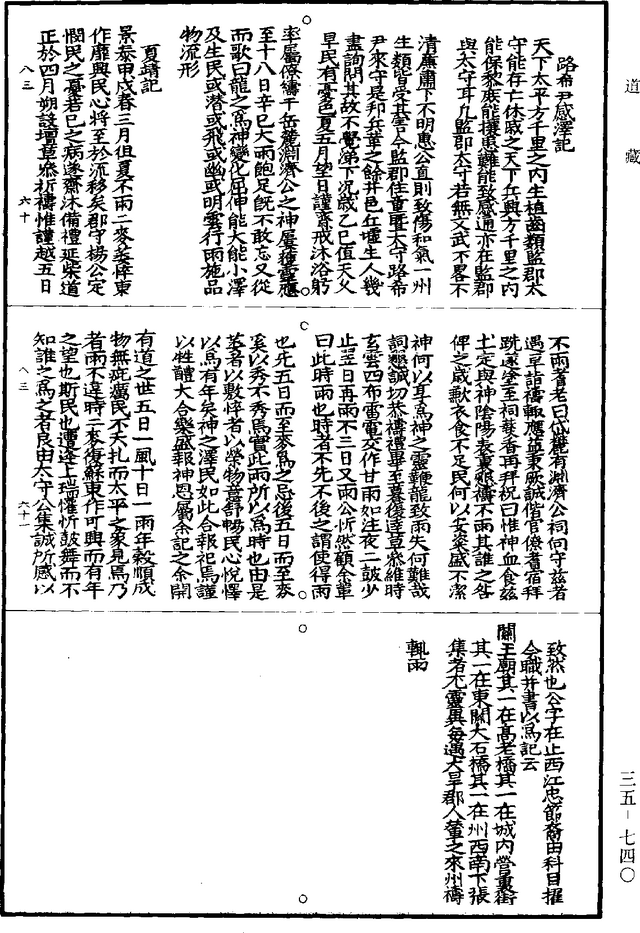 道藏
路希尹感澤記
天下太平方千里之內生植齒類監郡太
守能存亡休戚之天下兵興方千里之內
能保黎庶能攘患難能致感通亦在監郡
與太守耳凡監郡太守若無文武不畧不
清廉肅下不明惠公直則致傷和氣一州
生類皆受其害今監郡任重璽太守路希
尹來守是邦兵革之餘井邑丘墟生人幾
盡詢問其故不覺涕下況歲乙巳值天火
旱民有憂色夏五月望日謹齋戒沐浴躬
率屬僚禱于岳麓淵濟公之神屢獲靈應
至十八日辛巳大雨飽足旣不敢忘又從
而歌曰龍之爲神變化屈伸能大能小澤
及生民或潛或飛或幽或明雲行雨施品
物流形
夏靖記
景泰甲戌春三月但夏不雨二麥萎悴東
作靡興民心將至於流移矣郡守楊公定
憫民之憂若已之病遂齋沐備禮延柴道
正於四月朔設壇草參祈禱惟謹越五日
八三
六十
不雨耆老曰岱麓有淵濟公祠向守茲者
遇旱詣禱輒應葉秉厥誠偕官僚耆宿拜
跣遂塗至祠爇香再拜祝曰惟神血食茲
土定與神陰陽表裏懇禱不雨其誰之咎
俾之歲歉衣食不足民何以安粢盛不潔
神何以享爲神之靈鞭龍致雨失何難哉
詞懇誠切恭禱禮畢至暮復達草參維時
玄雲四布雷電交作甘雨如注夜二鼓少
止翌日再雨不三日又雨公忻然顧余輩
曰此時雨也時者不先不後之謂使得雨
也先五日而至麥焉之忌後五日而至麥
奚以秀不秀焉實此雨所以爲時也由是
萎者以敷悴者以榮物意舒暢民心悅懌
以爲有年矣神之澤民如此合報祀焉謹
以牲醴大合樂盛報神恩屬余記之余聞
有道之世五日一風十日一雨年穀順成
物無疵厲民不夭扎而太平之象見焉乃
者雨不違時二麥復蘇東作可興而有年
之望也斯民也遭逢上瑞懽忻鼓舞而不
知誰之爲之者良由太守公集誠所感以
八三
六十一
致然也公字在止西江忠節裔由科目擢
今職并書以爲記云
關王廟其一在高老橋其一在城內營裏街
其一在東關大石橋其一在州西南下張
集者尤靈異每遇大旱郡人輦之來州禱
輒雨
三五-七四〇